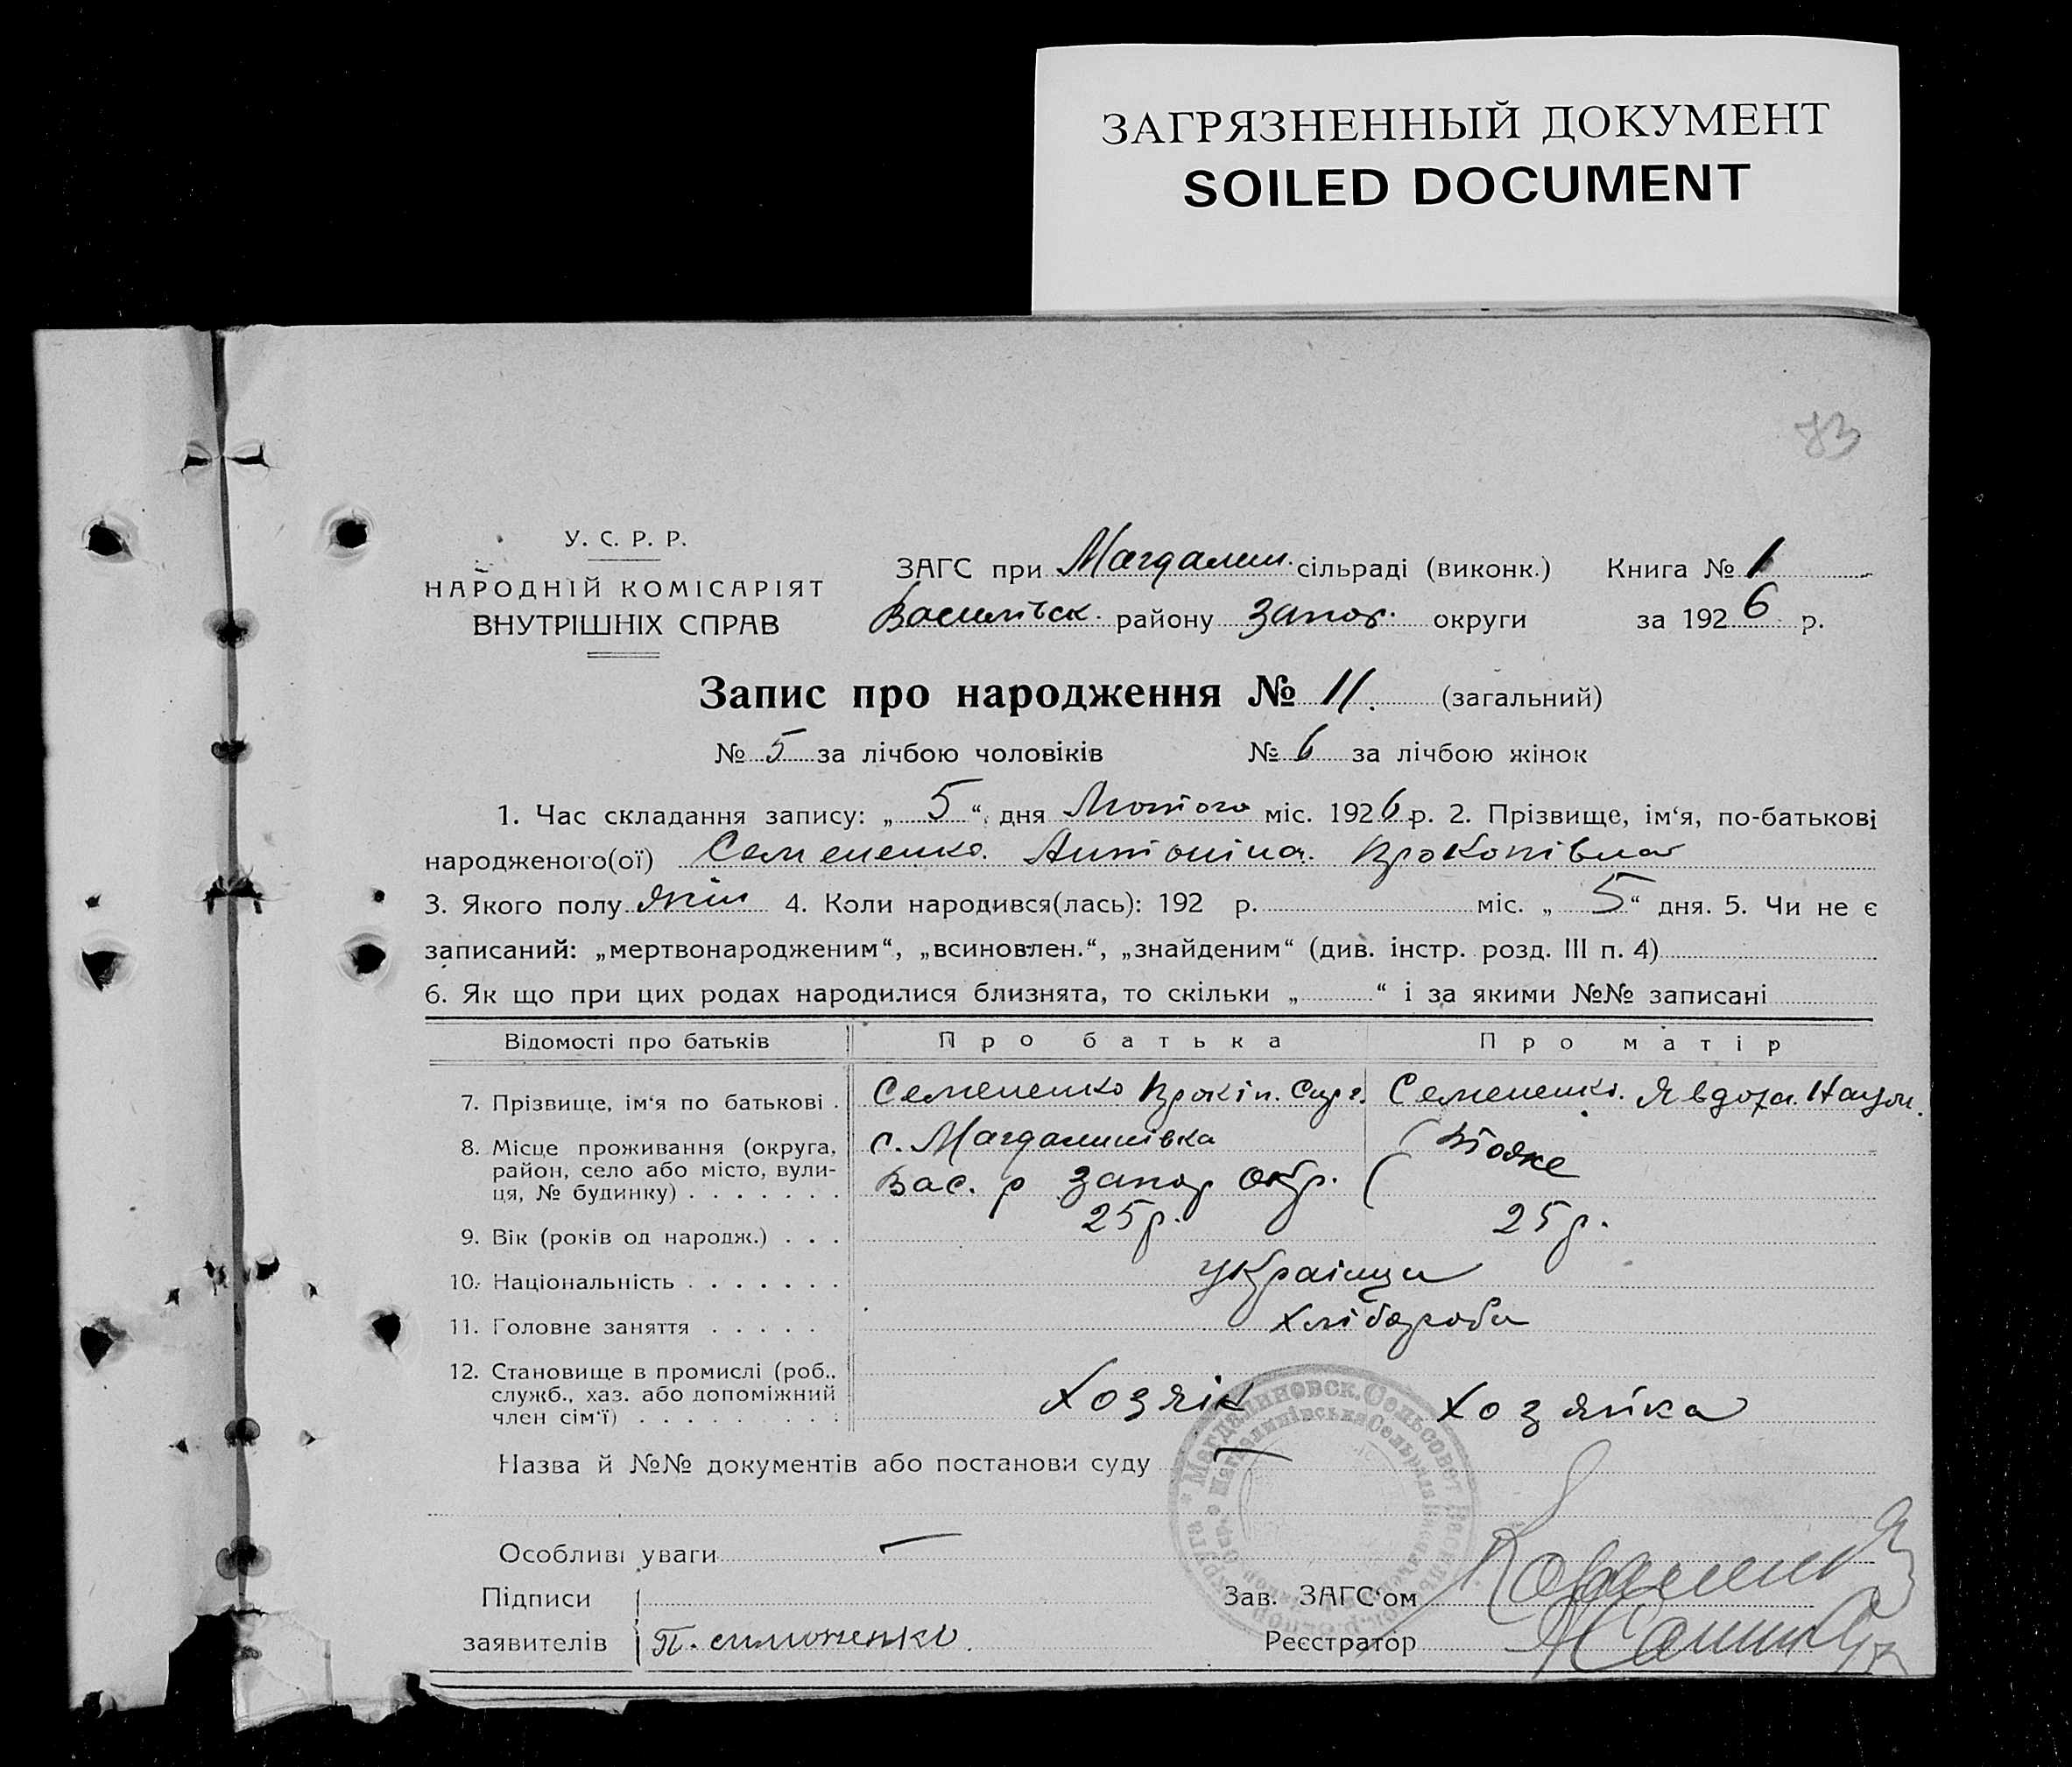 ЗАГРЯЗНЕННЫЙ ДОКУМЕНТ
SOILED DOCUMENT
У. С. Р. Р.
НАРОДНІЙ КОМІСАРІЯТ
ВНУТРІШНІХ СПРАВ
ЗАГС при Магдалин. сільраді (виконк.) Книга № 1
Василівськ. району Запор. округи за 1926 р.
Запис про народження № 11. (загальний)
№ 5 за лічбою чоловіків № 6 за лічбою жінок
1. Час складання запису: „ 5 “ дня Лютого міс. 1926 р. 2. Прізвище, ім‘я, по-батькові
народженого(ої) Семененко. Антоніна. Прокопівна
3. Якого полу жін 4. Коли народився(лась): 192 р. міс. „ 5 “ дня. 5. Чи не є
записаний: „мертвонародженим“, „всиновлен.“, „знайденим“ (див. інстр. розд. III п. 4)
6. Як що при цих родах народилися близнята, то скільки „ “ і за якими №№ записані
Відомості про батьків Про батька Про матір
7. Прізвище, ім‘я по батькові . Семененко Прокіп. Семененко. Явдоха.
8. Місце проживання (округа, район, село або місто, вулиця, № будинку) . . . . . . .
с. Магдалинівка Тодже
Вас. р Запор окр.
9. Вік (років од народж.) . . . 25 р. 25 р.
10. Національність . . . . . . . українци
11. Головне заняття . . . . . хлібороби
12. Становище в промислі (роб.. служб., хаз. або допоміжний член сім‘ї) . . . . . . . . . Хозяін Хозяйка
Назва й №№ документів або постанови суду —
Особливі уваги —
Підписи Зав. ЗАГС‘ом
заявителів Реєстратор